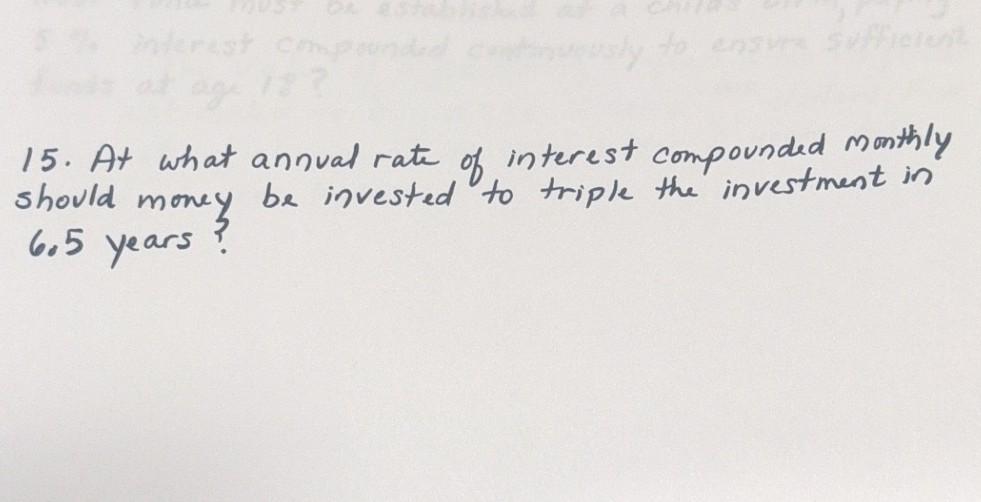 5 % interest compounded continuously to ensure sufficient
funds at age 18?
15. At what annual rate of interest compounded monthly
should money be invested to triple the investment in
6.5 years?